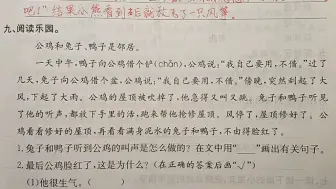 吧！”结果小熊看到后就放飞了一只风筝。
九、阅读乐园。
公鸡和兔子、鸭子是邻居。
一天中午，鸭子向公鸡借个铲(chǎn)，公鸡说：“我自己要用，不借。”过了
几天，兔子向公鸡借个盆，公鸡说：“我自己要用，不借。”傍晚，突然刮起了大
风，下起了大雨。公鸡的屋顶被吹掉了，他急得又叫又跳。兔子和鸭子听见
了他的叫声，都放下手里的活，跑来帮他抢修屋顶。风停了，屋顶修好了。公
鸡看看修好的屋顶，再看看满身泥水的兔子和鸭子，不由得脸红了。
1.兔子和鸭子听到公鸡的叫声是怎么做的？在文中用“ ”画出有关句子。
2.最后公鸡脸红了，这是为什么？(在正确的答案后画“√”)
(1)他很生气。( )